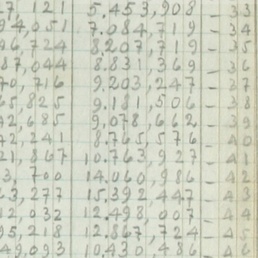 7 121 5.453,908 – 33
94,051 7.084,719 – 34
96,724 8.207,719 – 35
87,044 8.831,369 – 36
70,716 9.203,247 – 37
65,825 9.181,506 – 38
42,685 9.078,662 39
22,241 8.765,576 – 40
21,867 10.763,927 – 41
3,700 14.060,986 – 42
63,277 15.392,447 – 43
12,032 12.498,007 – 44
95,218 12.867,724 – 45
49,093 10.430,486 – 46